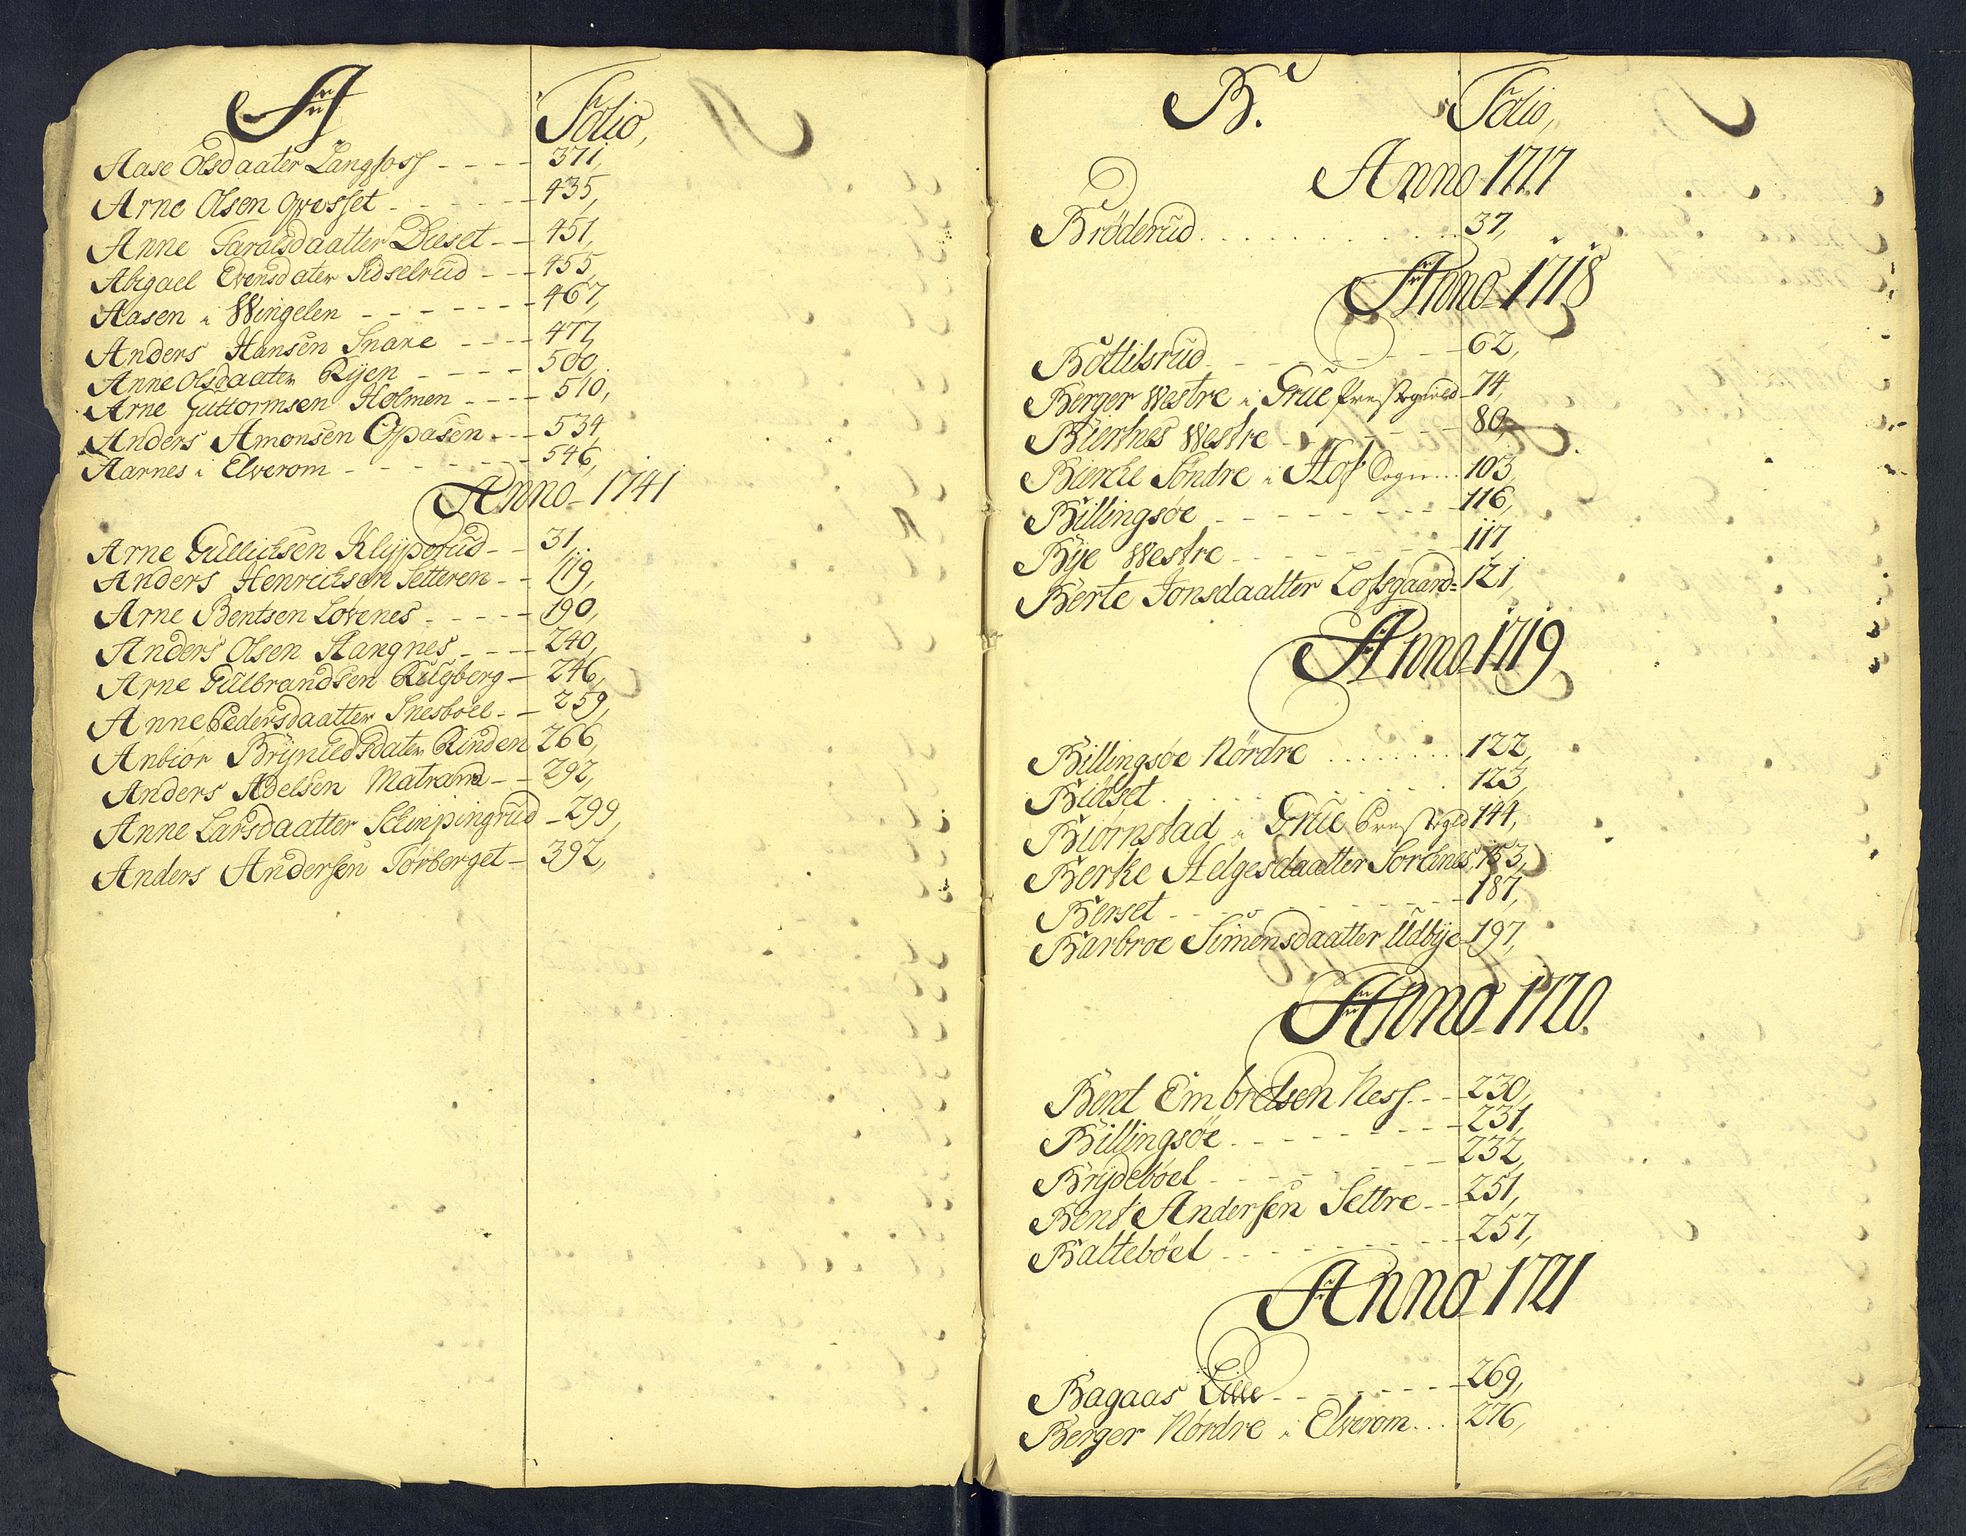 A Folio,
Aase Olsdaater Langfoss 371,
Arne Olsen Opesset 435,
Anne Taralsdaatter Dieset 451,
Abigael Evensdater Kidselrud 455,
Aasen i Wingelen 467,
Anders Hansen Snare 477,
Anne Olsdaater Rÿen 500,
Arne Guttormsen Holmen 510,
Anders Amonsen Opasen 534
Aarnes i Elverom 546,
Anno 1741
Arne Gullichsen Klÿperud 31,
Anders Henrichsen Setteren 119,
Arne Bentsen Lovenes 190,
Anders Olsen Aangnes 240,
Arne Gulbrandsen Rugberg 246,
Anne Pedersdaatter Snesboel 259,
Anbior Brÿnildsdater Rinden 266,
Anders Adelsen Matrand 292,
Anne Larsdaatter 299,
Anders Andersen Torberget 392,
B. Folio,
Anno 1717
Bröderud 37,
Anno 1718
Bottilsrud 62,
Berger Westre i Grue Prestegield 74,
Biertnes Westre 80,
Søndre i Hof Sogn 103,
Billingsøe 116,
Bÿe Westre 117
Berte Jonsdaatter Lofsgaard 121,
Anno 1719
Billingsøe Nordre 122,
123,
Biørnstad i Grue Prestegld 144,
Berte Helgesdaatter 153,
Berset 187,
Barbroe Simensdaatter Udbÿe 197,
Anno 1720.
Bent Embretsen Ness 230,
Billingsøe 231,
Brÿdeböel 232,
Bent Andersen Settre 251,
Balteböel 257,
Anno 1721
Bagaas Lille 269,
Berger Nordre i Elverom 276,